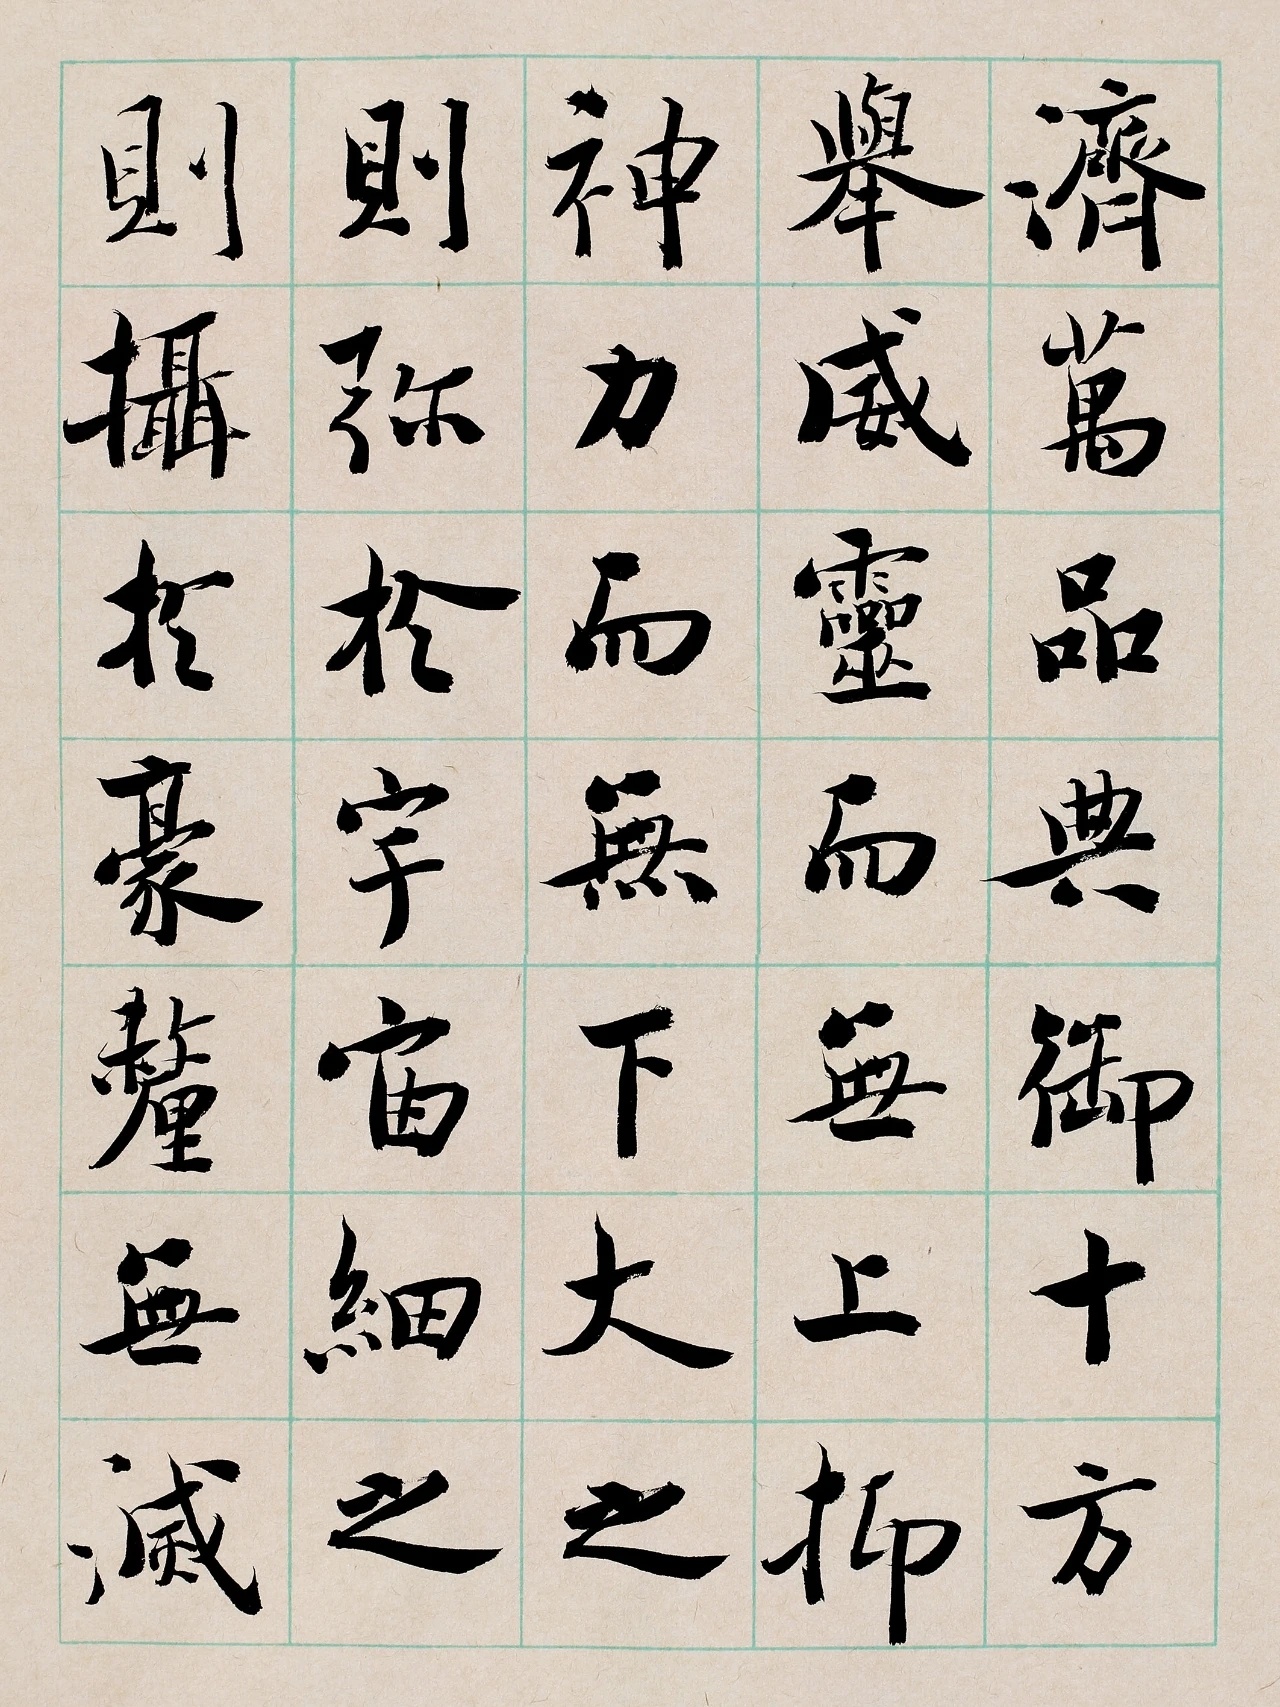 濟萬品典御十方
舉威靈而無上抑
神力而無下大之
則弥於宇宙細之
則攝於豪釐無滅